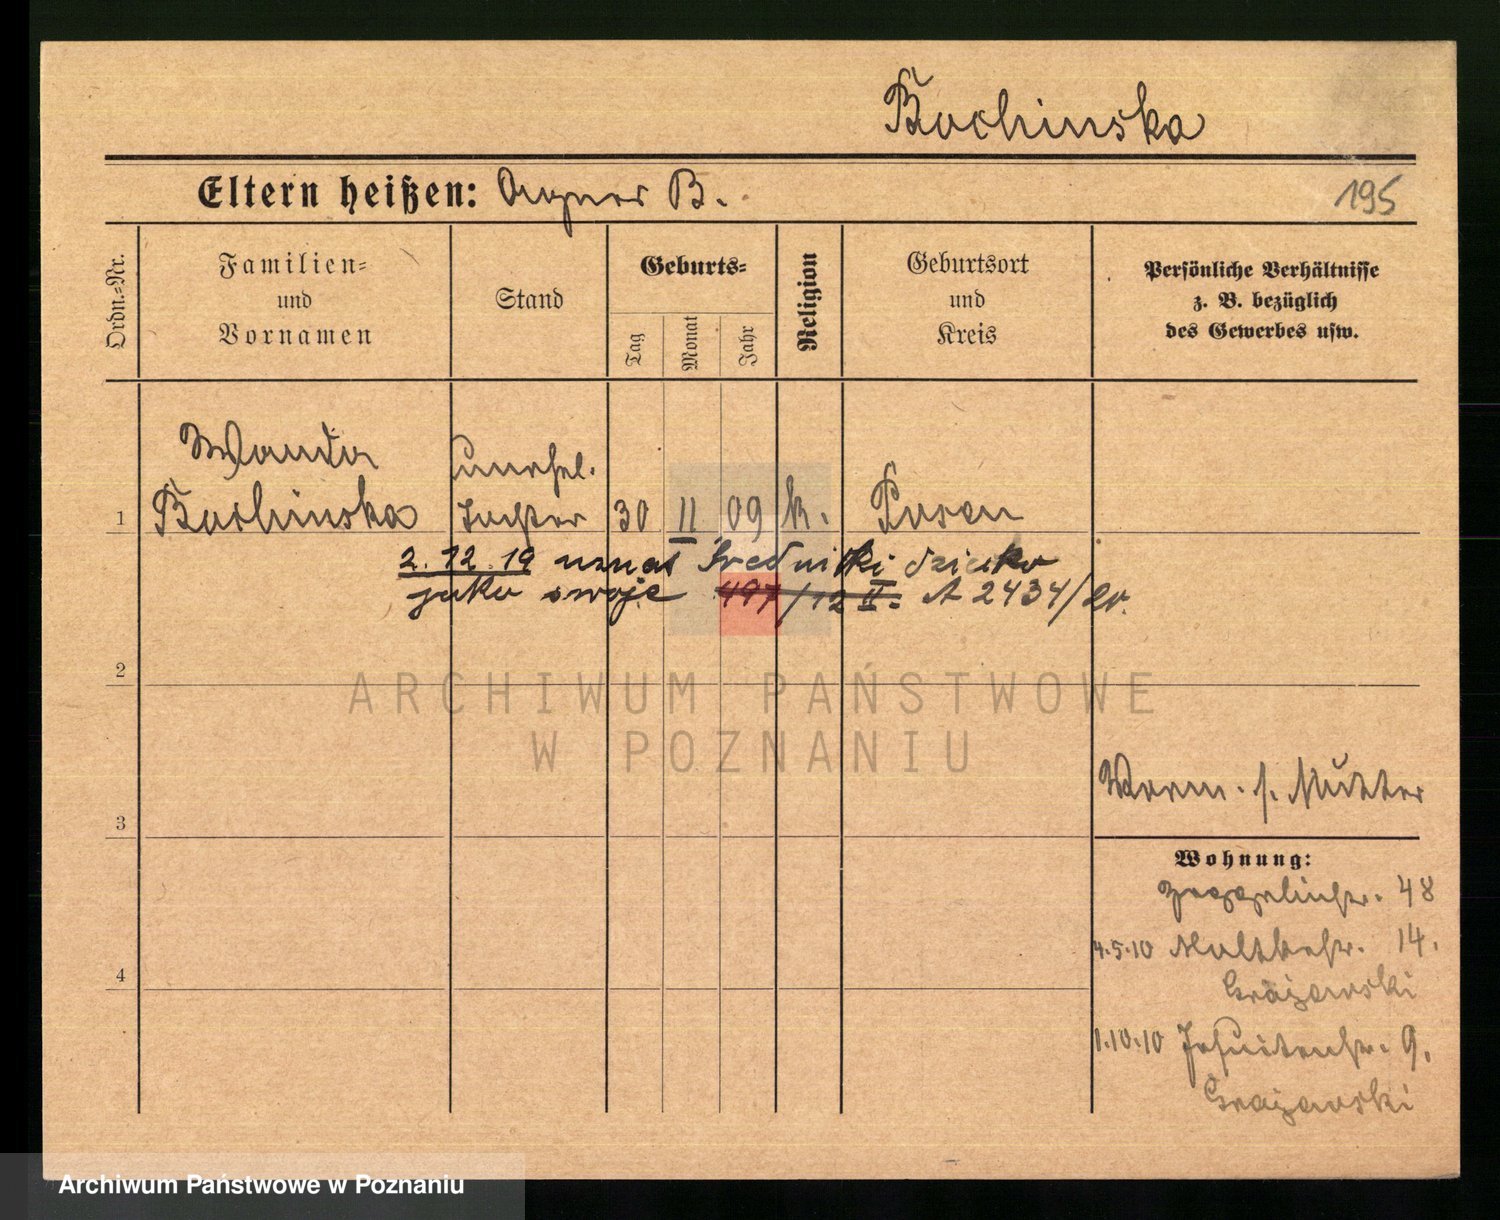 Bochinska
Eltern heißen: Agnes B.
195
Ordn.-Nr.
Familien-
und
Vornamen
Stand
Geburts-
Tag
Monat
Jahr
Religion
Geburtsort
und
Kreis
Persönliche Verhältnisse
z. B. bezüglich
des Gewerbes usw.
Wanda
unehel.
1 Bochinska Tochter 30 II 09 k. Posen
2.12.19 uznał Średnicki dziecko
jako swoje 497/12 II. A 2434/20.
2
ARCHIWUM PAŃSTWOWE
W POZNANIU
Vorm. s. Mutter
3
Wohnung:
Zeppelinstr. 48
4.5.10 Moltkestr. 14.
4
Grajewski
1.10.10 Jesuitenstr. 9.
Grajewski
Archiwum Państwowe w Poznaniu